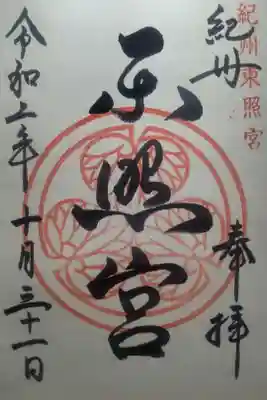 紀州東照宮
紀州
奉拝
東照宮
令和 年十月三十一日